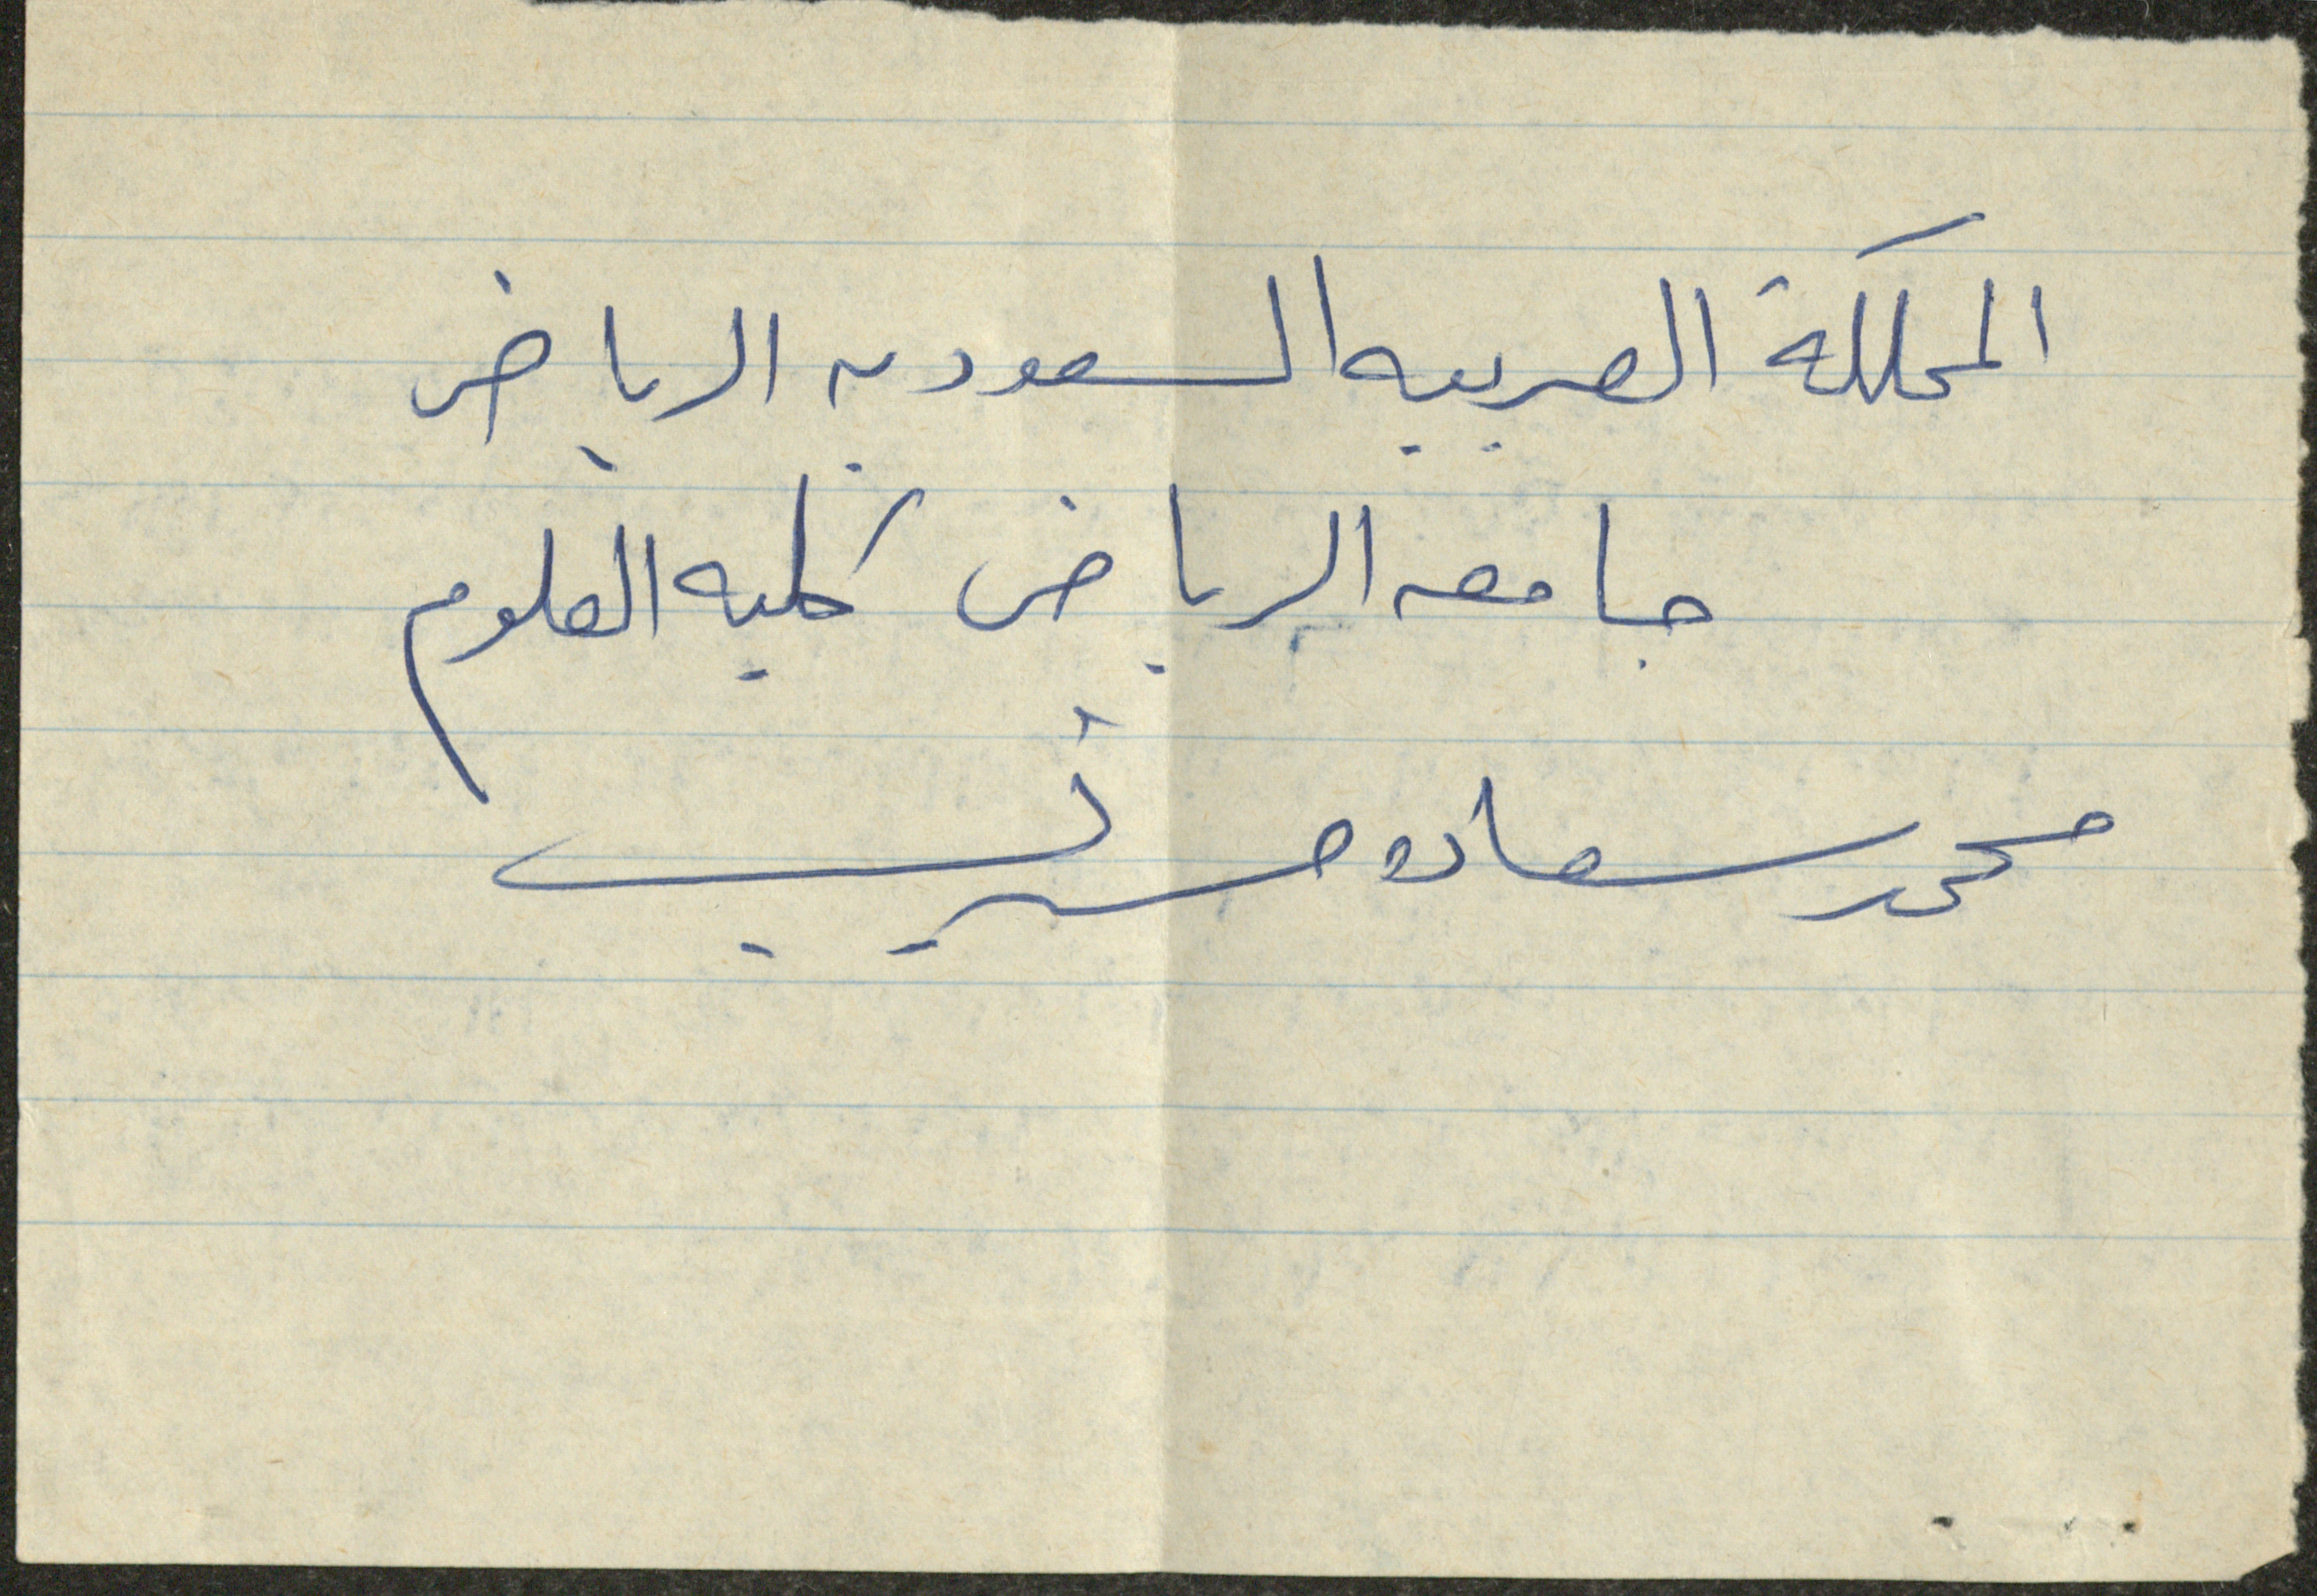 المملكة العربيه السعوديه الرياض
جامعه الرياض كلية العلوم
محمد سعاده